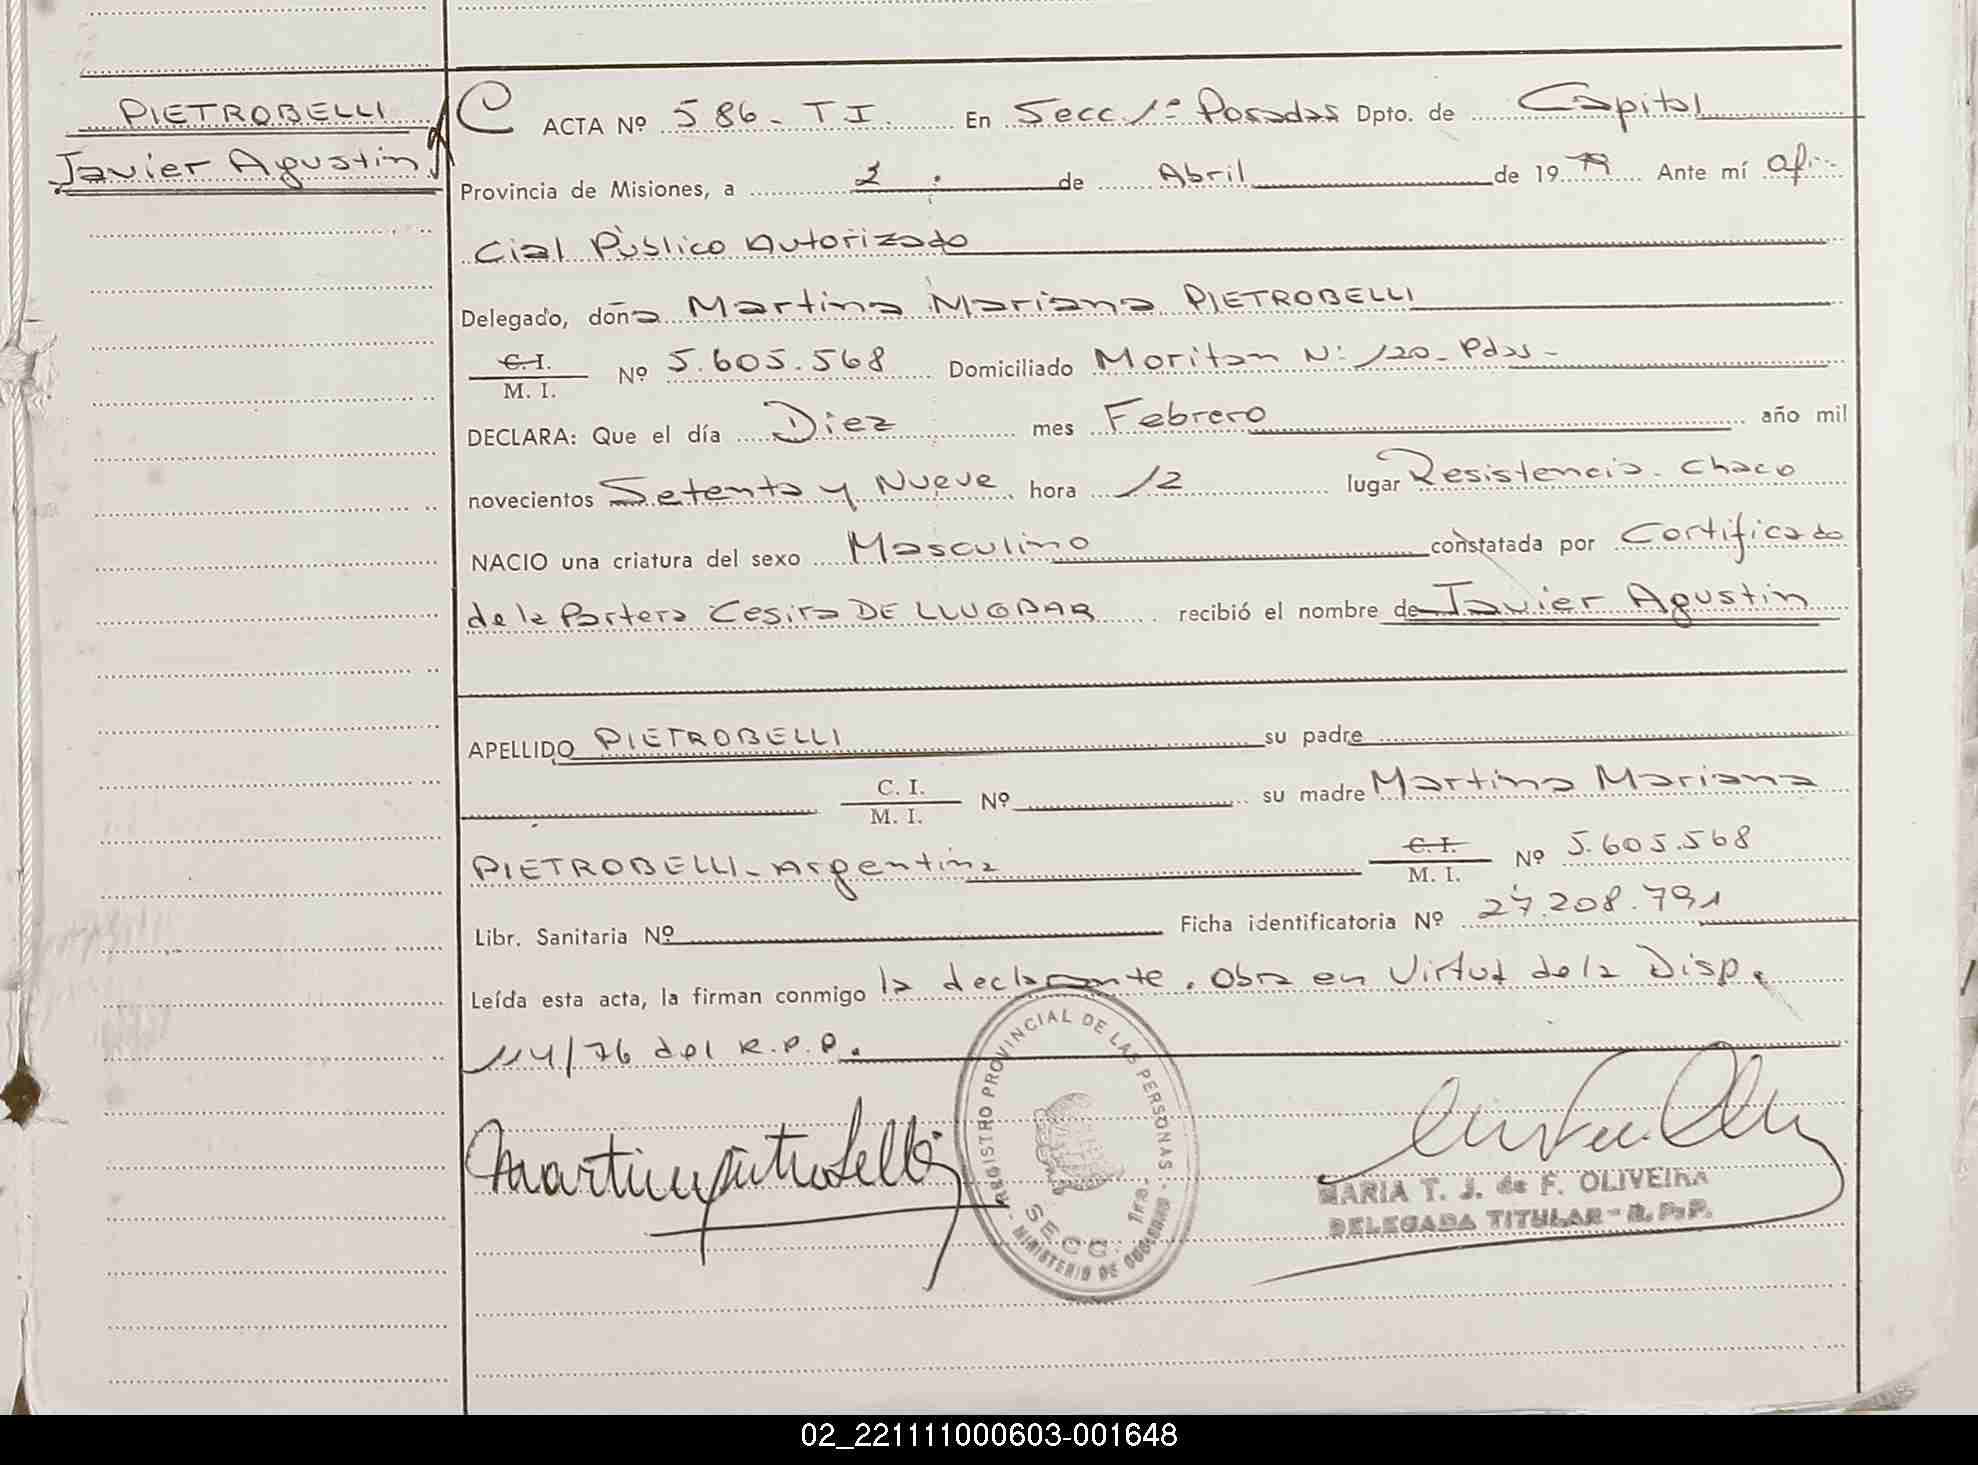 PIETROBELLI
Javier Agustin
C ACTA Nº 586 - T I. En Secc 1ª Posadas Dpto. de Capital
Provincia de Misiones, a 2 de Abril de 1979 Ante mí ofi-
cial Público Autorizado
Delegado, doña Martina Mariana PIETROBELLI
C. I.
M. I. Nº 5.605.568 Domiciliado Moritan Nº 120 - Pdas -
DECLARA: Que el día Diez mes Febrero año mil
novecientos Setenta y Nueve hora 12 lugar Resistencia - Chaco
NACIO una criatura del sexo Masculino constatada por Certificado
de la Partera Cesira DE LLUGBAR recibió el nombre de Javier Agustin
APELLIDO PIETROBELLI su padre
C. I.
M. I. Nº su madre Martina Mariana
PIETROBELLI - Argentina C. I.
M. I. Nº 5.605.568
Libr. Sanitaria Nº Ficha identificatoria Nº 27.208.791
Leída esta acta, la firman conmigo la declarante. Obra en Virtud de la Disp.
114/76 del R.P.P.
REGISTRO PROVINCIAL DE LAS PERSONAS
SECC. 1ra.
MINISTERIO DE GOBIERNO
MARIA T. J. de F. OLIVEIRA
DELEGADA TITULAR - R. P. P.
02_221111000603-001648